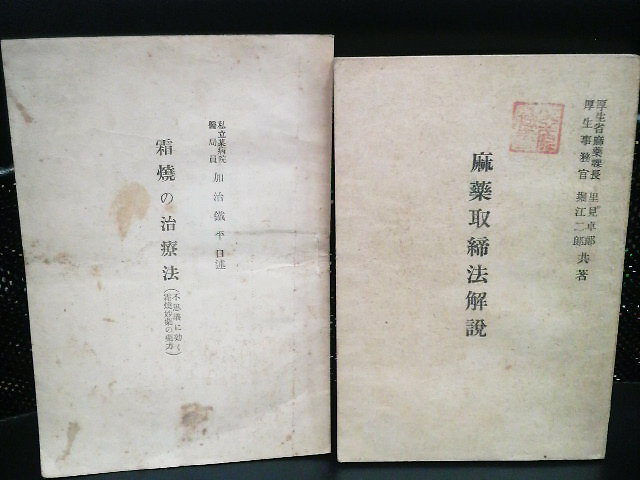 私立某病院
醫局員
加治鐵平口述
霜燒の治療法
(不思議に効く
霜燒妙藥の處方)
厚生省麻藥課長 里見卓郎
厚生事務官 堀江二郎
共著
麻藥取締法解說